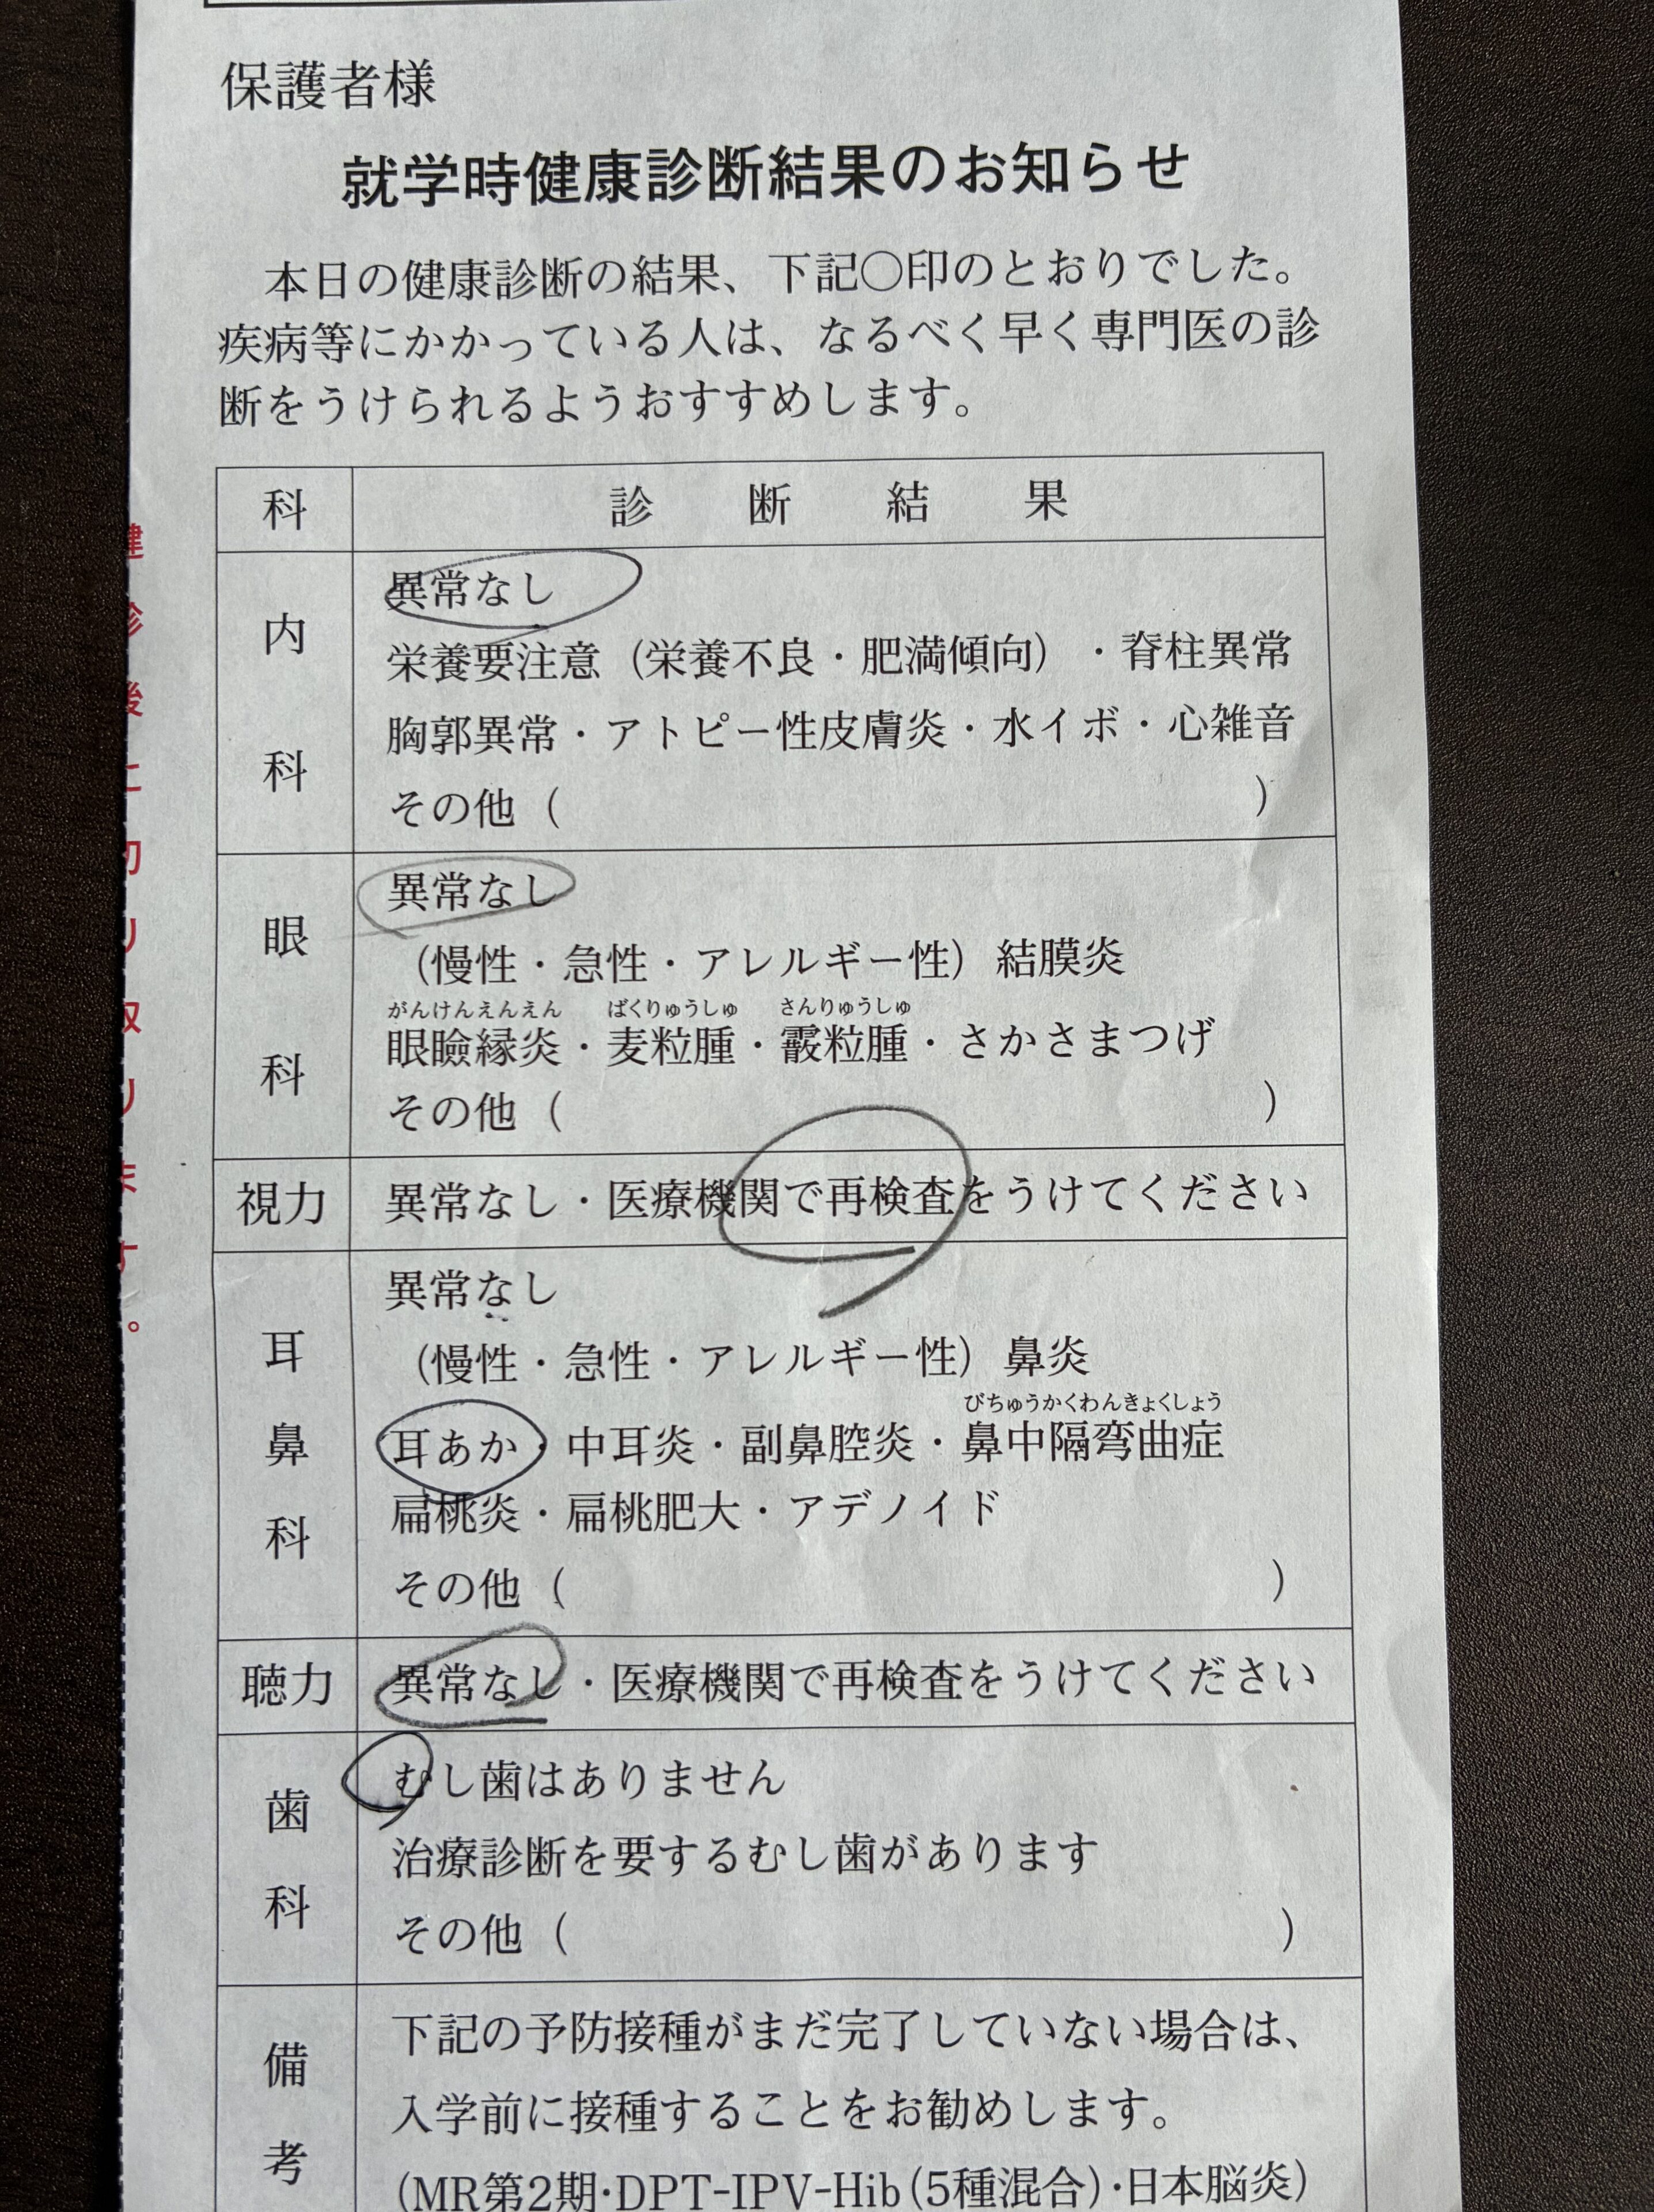 保護者様
就学時健康診断結果のお知らせ
本日の健康診断の結果、下記〇印のとおりでした。
疾病等にかかっている人は、なるべく早く専門医の診
断をうけられるようおすすめします。
科 診断結果
内科
異常なし
栄養要注意（栄養不良・肥満傾向）・脊柱異常
胸郭異常・アトピー性皮膚炎・水イボ・心雑音
その他（ ）
眼科
異常なし
（慢性・急性・アレルギー性）結膜炎
がんけんえんえん ばくりゅうしゅ さんりゅうしゅ
眼瞼縁炎・麦粒腫・霰粒腫・さかさまつげ
その他（ ）
視力 異常なし・医療機関で再検査をうけてください
耳鼻科
異常なし
（慢性・急性・アレルギー性）鼻炎
びちゅうかくわんきょくしょう
耳あか・中耳炎・副鼻腔炎・鼻中隔弯曲症
扁桃炎・扁桃肥大・アデノイド
その他（ ）
聴力 異常なし・医療機関で再検査をうけてください
歯科
むし歯はありません
治療診断を要するむし歯があります
その他（ ）
備考
下記の予防接種がまだ完了していない場合は、
入学前に接種することをお勧めします。
（MR第2期・DPT-IPV-Hib（5種混合）・日本脳炎）
健診後に切り取ります。